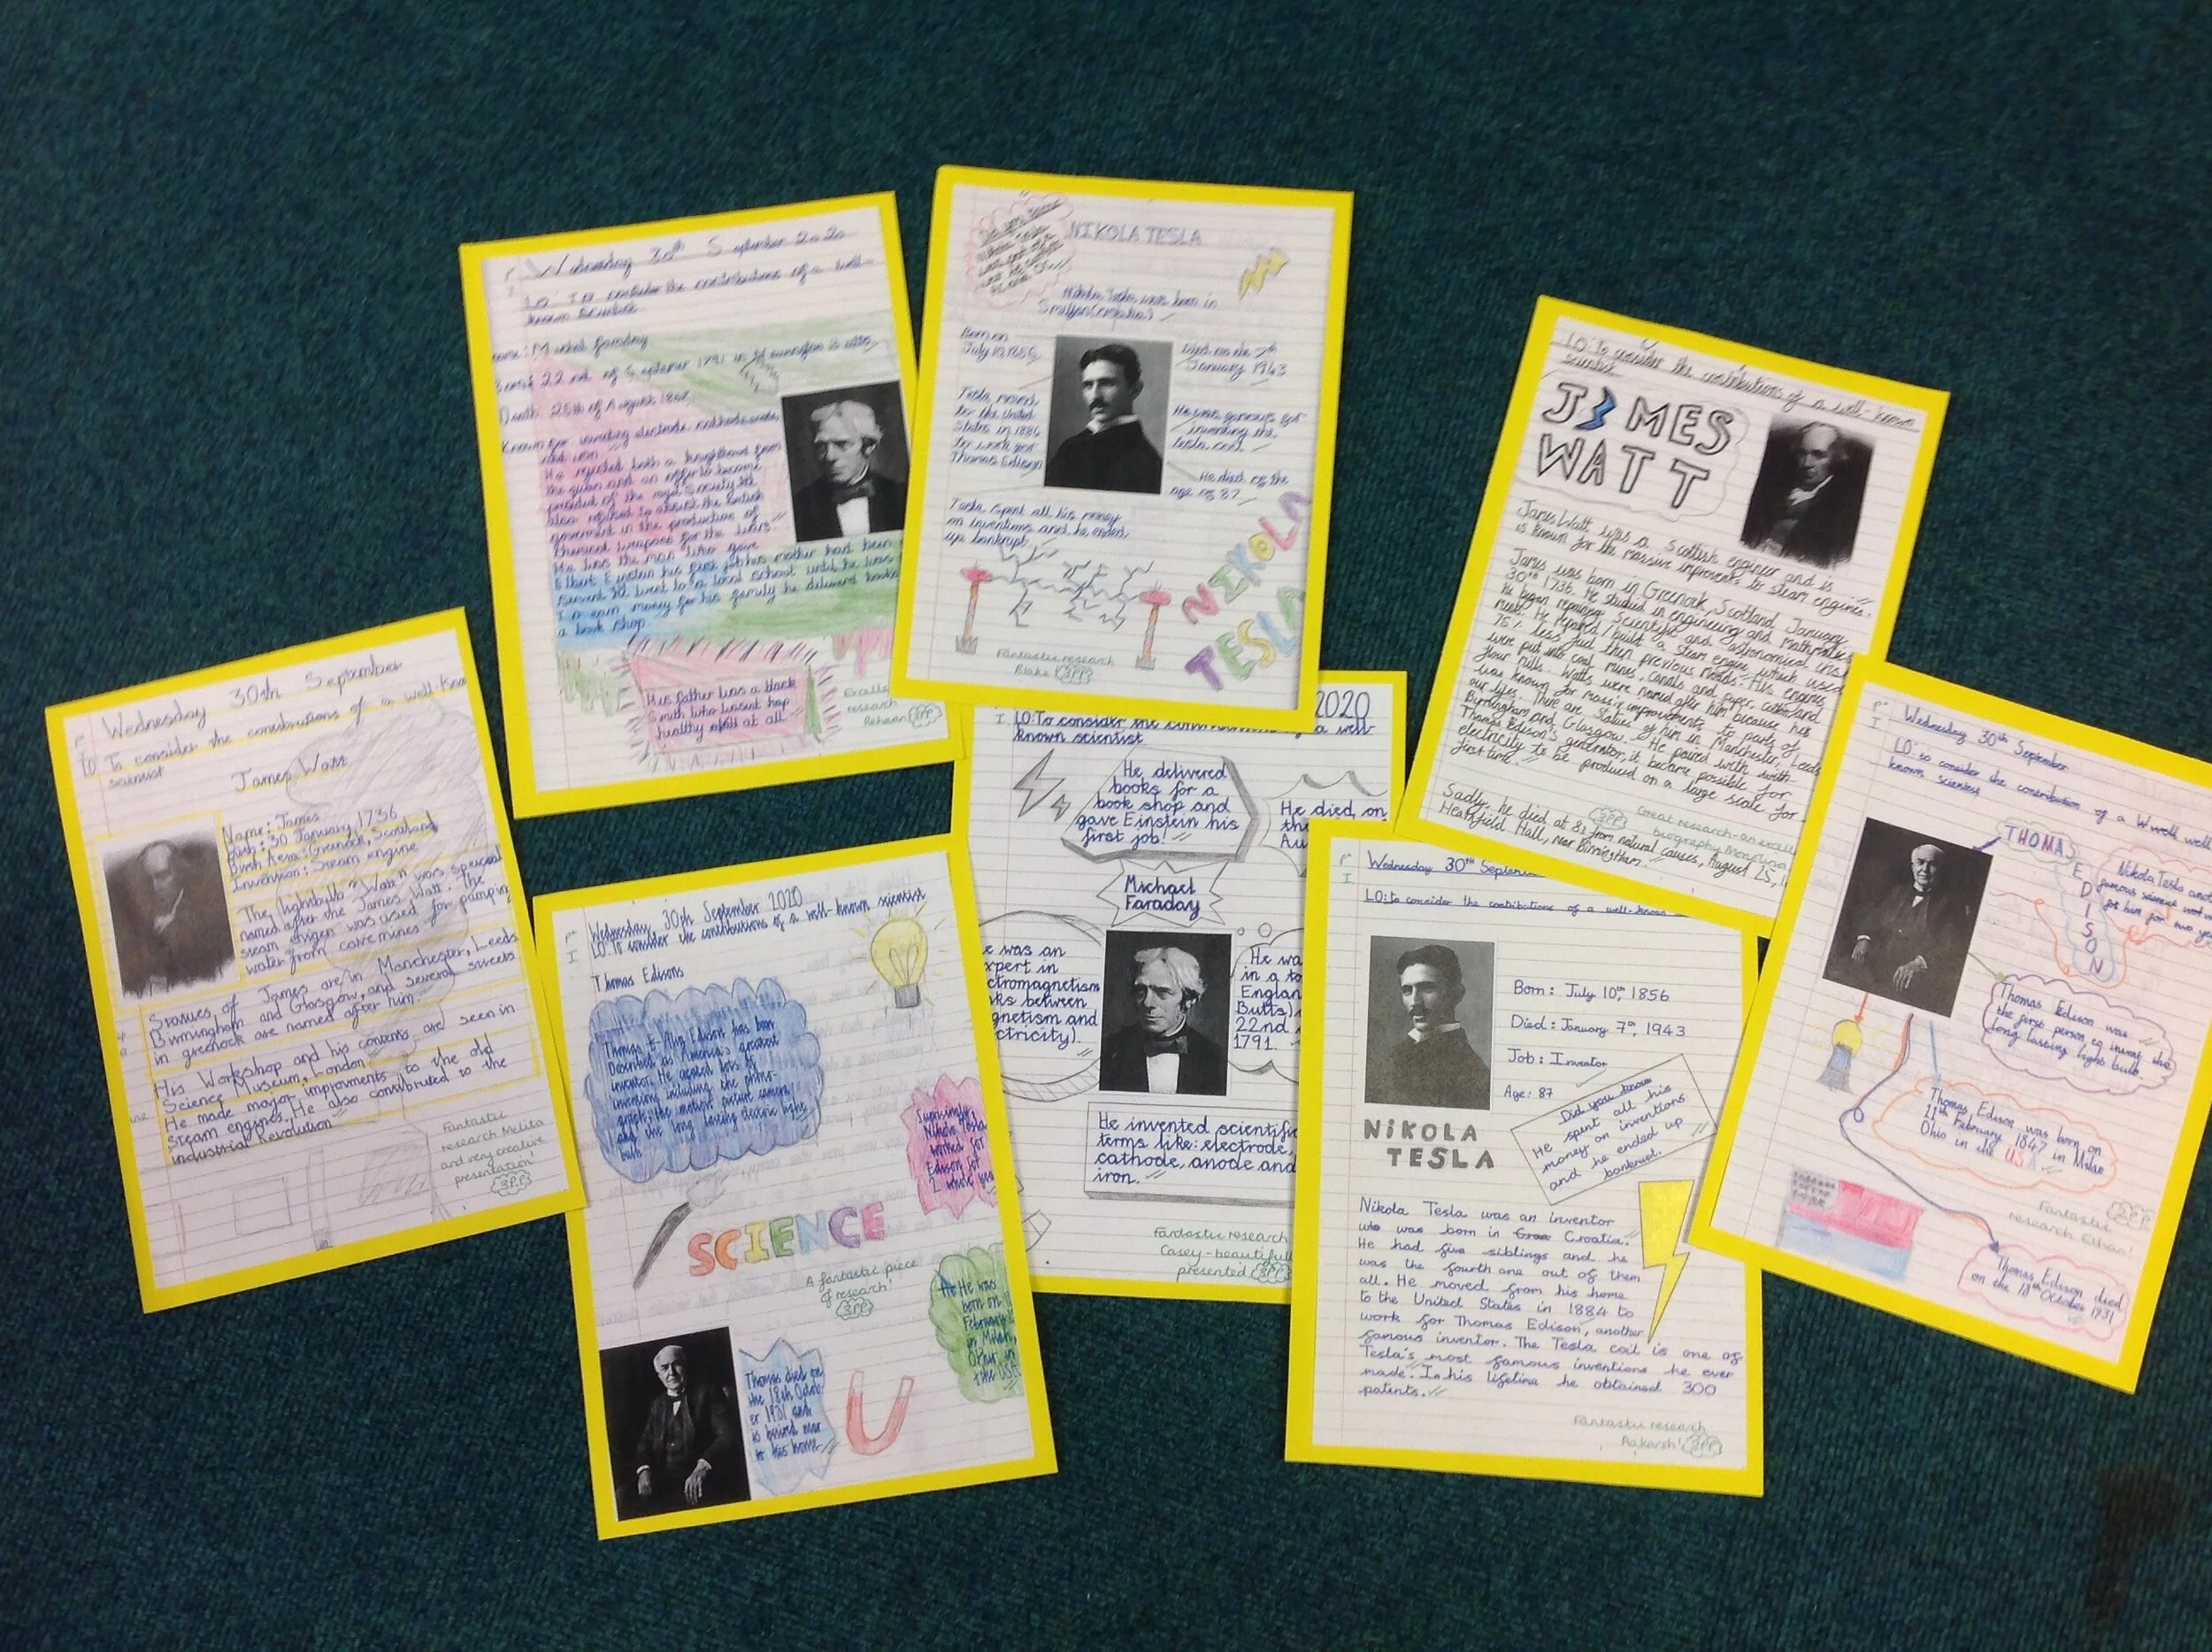 Wednesday 30th September
LO To consider the contributions of a well-know
scientist
James Watt
Name: James
Birth: 30 January, 1736
Birth Area: Grenock, Scotland
Invension: Steam engine
The lightbulb "Watt" wors speciall
named after the James Watt. The
steam engien was used for pamping
water from cave mines.
Statues of James are in Manchester, Leeds
Birmingham and Glasgow, and several streets
in greenock are named after him.
His Workshop and his contents are seen in
Science Museum, London.
He made major improvments to the old
steam engines. He also constibuted to the
industrial Revolution
Fantastic
research Melita
and very creative
presentation!
3PP
Wednesday 30th September 2020
LO To consider the contributions of a well-
known scientist
Death: 25th of August
He rejected both a knighthood from
the queen and an offer to become
president of the royal Society. He
also refused to assist the British
goverment in the production of
chemical weapons for the wars
He was the man who gave
Elbert Einstein his first job his mother had been
servent He went to a local school until he was
to earn money for his family he delivered books
a book shop
His father was a black
Smith who wasent hap
healthy at all
Excelle
research
Rehaan 3PP
NIKOLA TESLA
Nikola Tesla was born in
Smiljan(croatia)
Born on
July 10, 1856
Died on the 7th
January 1943
Tesla moved
to the United
States in 1884
to work for
Thomas Edison
He was famous for
inventing the
tesla coil
He died at the
age of 87
Tesla spent all his money
on inventions and he ended
up bankrupt
NIKOLA
TESLA
Fantastic research
Blake 3PP
Wednesday, 30th September 2020
LO: To consider the contributions of a well-known scientist
Thomas Edisons
Thomas E Alva Edison has been
Described as America's greatest
inventor. He created lots of
inventions including the phono-
graph, the motion picture camera
and the long lasting electric light
bulb.
Suprisingly
Nikola Tesla
worked for
Edison for
2 whole yea
SCIENCE
A fantastic piece
of research!
3PP
He was
born on 11
February
in Milan,
Ohio, in
the USA
Thomas died on
the 18th Octob-
er 1931 and
is buried near
to his home
2020
LO: To consider the contributions of a well-
known scientist
He delivered
books for a
book shop and
gave Einstein his
first job!
He died on
the
Au
Michael
Faraday
e was an
xpert in
ctromagnetism
ks between
gnetism and
ctricity).
He wa
in a to
Englan
Butts)
22nd
1791.
He invented scientific
terms like: electrode,
cathode, anode and
iron.
Fantastic research
Casey - beautifull
presented 3PP
LO: To consider the contributions of a well-known
scientist
JAMES
WATT
James Watt was a Scottish engineer and is
is known for the massive improvments to steam engines.
James was born in Grenock, Scotland, January
30th 1736. He studied in engineering and Mathmatics
He began repairing Scientific and astronomical inst
ments. He repaired/built a steam engine which used
75% less fuel then previous models. His engines
were put into coal mines, canals and paper, cotton and
flour mills. Watts were named after him because he
was known for massive improvements to parts of
our lifes. There are statues of him in Manchester, Leeds
Birmingham and Glasgow. He paired with with
Thomas Edison's generator, it became possible for
electricity to be produced on a large scale for
first time.
Sadly, he died at 83 from natural causes, August 25, 1
Heathfield Hall, near Birmingham.
3PP
Great research - an excell
biography
Wednesday 30th Septem
LO: to consider the contributions of a well-known
Born: July 10th, 1856
Died: January 7th, 1943
Job: Inventor
Age: 87
NiKOLA
TESLA
Did you know
He spent all his
money on inventions
and he ended up
bankrupt.
Nikola Tesla was an inventor
who was born in Croatia.
He had five siblings and he
was the fourth one out of them
all. He moved from his home
to the United States in 1884 to
work for Thomas Edison, another
famous inventor. The Tesla coil is one of
Tesla's most famous inventions he ever
made. In his lifetime he obtained 300
patents.
Fantastic research
Aakarsh! 3PP
Wednesday 30th September
LO: to consider the contribution of a W well
known scientist
THOMAS
EDISON
Nikola Tesla anot
famous scienst wo
for him for two ye
Thomas Edison was
the first person to invent the
long lasting light bulb.
Thomas Edison was born on
11th February 1847 in Milan
Ohio in the USA
Fantastic
research Ethan!
3PP
Thomas Edison died
on the 18th October 1931